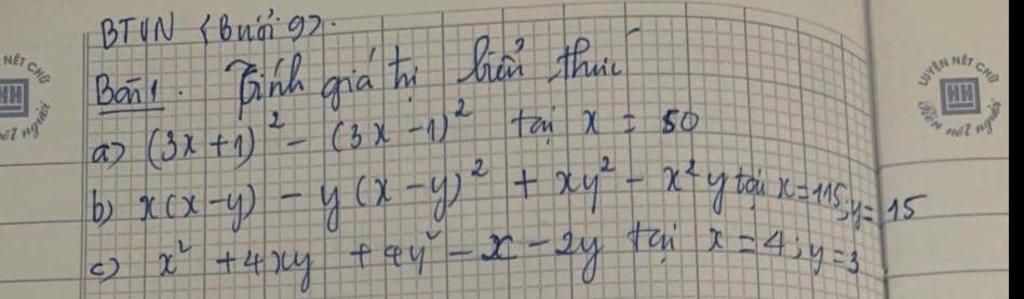 BTVN (Buổi 9).
Bài 1. Tính giá trị biểu thức
a) (3x + 1)² - (3x - 1)² tại x = 50
b) x(x-y) - y(x-y)² + xy² - x²y tại x=115; y=15
c) x² + 4xy + 4y² - x - 2y tại x = 4; y = 3
NÉT CHỮ
HH
nết người
LUYỆN NÉT CHỮ
HH
Rèn nết người